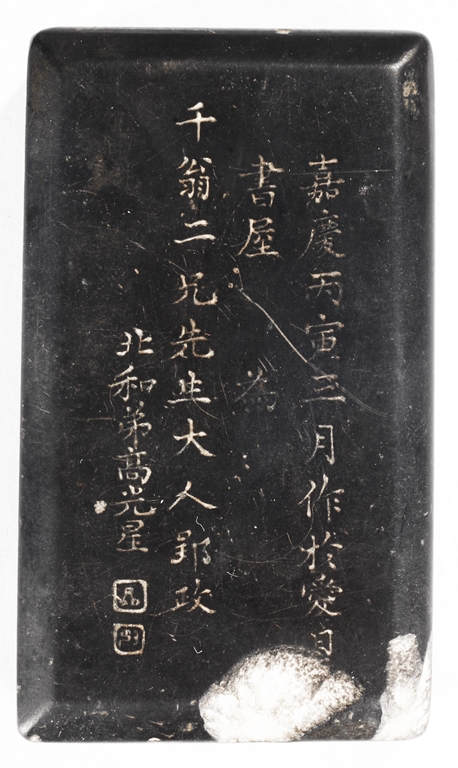 嘉慶丙寅三月作於愛日
書屋 為
千翁二兄先生大人郢政
北和弟高光星